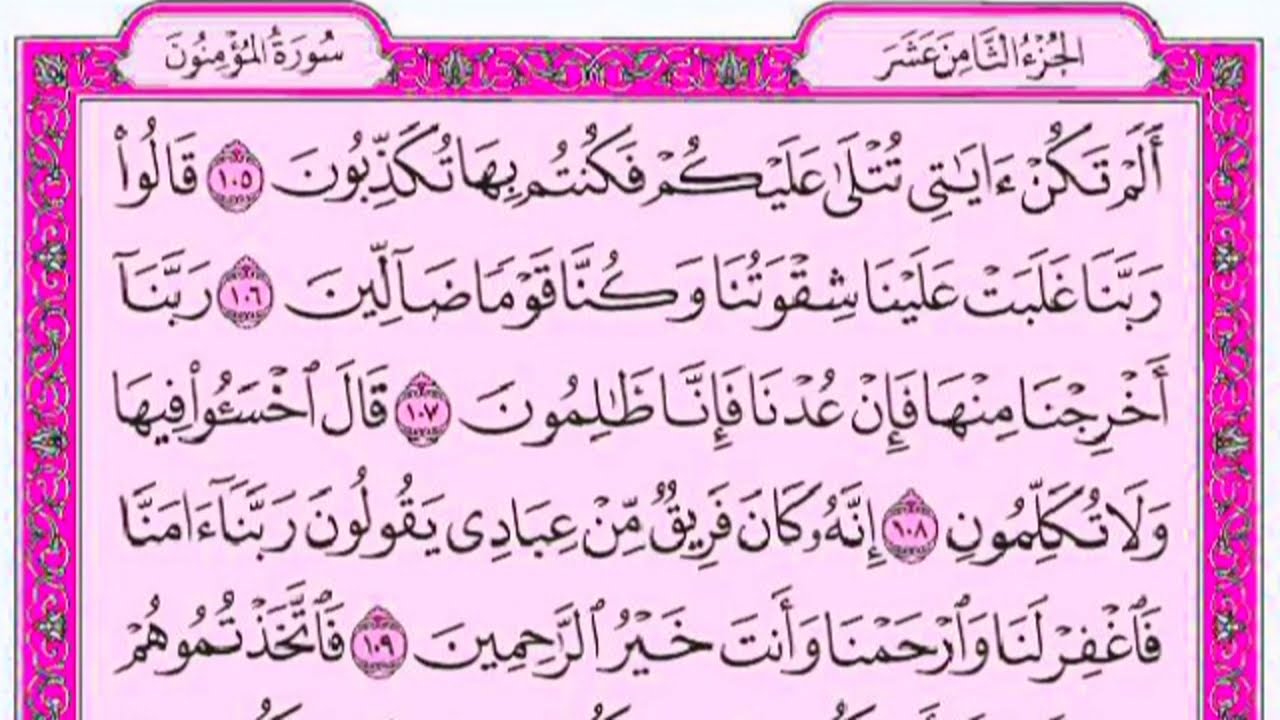 الجُزْءُ الثَّامِنَ عَشَرَ
سُورَةُ المُؤْمِنُونَ
أَلَمْ تَكُنْ ءَايَٰتِى تُتْلَىٰ عَلَيْكُمْ فَكُنتُم بِهَا تُكَذِّبُونَ ١٠٥ قَالُوا۟
رَبَّنَا غَلَبَتْ عَلَيْنَا شِقْوَتُنَا وَكُنَّا قَوْمًا ضَآلِّينَ ١٠٦ رَبَّنَآ
أَخْرِجْنَا مِنْهَا فَإِنْ عُدْنَا فَإِنَّا ظَٰلِمُونَ ١٠٧ قَالَ ٱخْسَـُٔوا۟ فِيهَا
وَلَا تُكَلِّمُونِ ١٠٨ إِنَّهُۥ كَانَ فَرِيقٌ مِّنْ عِبَادِى يَقُولُونَ رَبَّنَآ ءَامَنَّا
فَٱغْفِرْ لَنَا وَٱرْحَمْنَا وَأَنتَ خَيْرُ ٱلرَّٰحِمِينَ ١٠٩ فَٱتَّخَذْتُمُوهُمْ